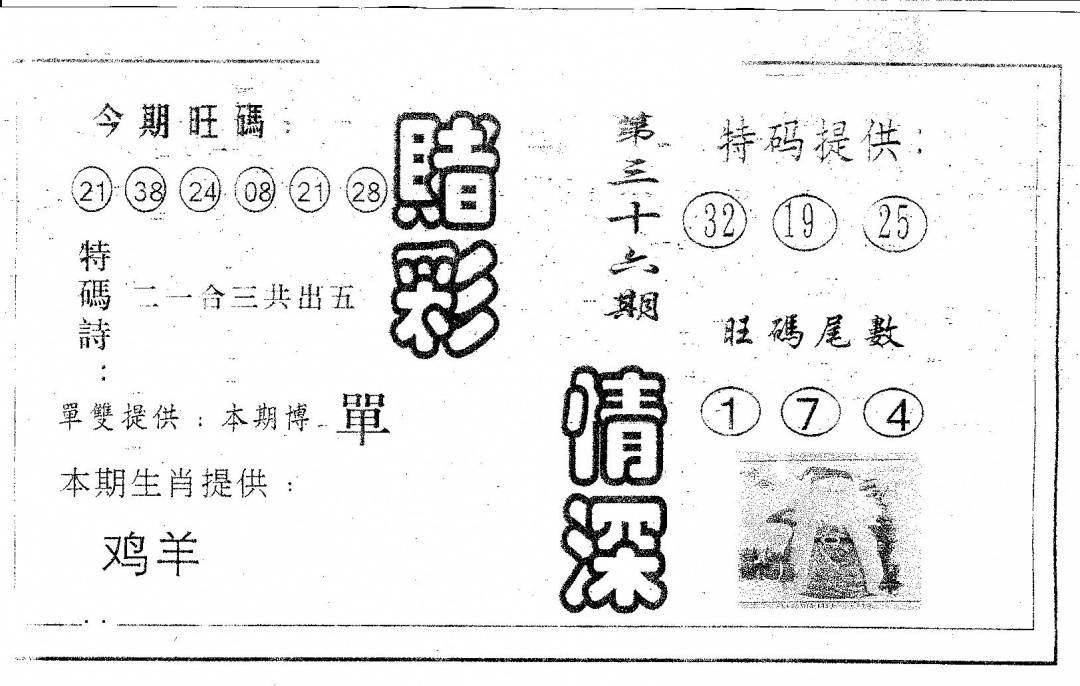 今期旺碼：
21 38 24 08 21 28
特碼詩：
二一合三共出五
單雙提供：本期博 單
本期生肖提供：
鸡羊
賭彩
情深
第三十六期
特码提供：
32 19 25
旺碼尾數
1 7 4